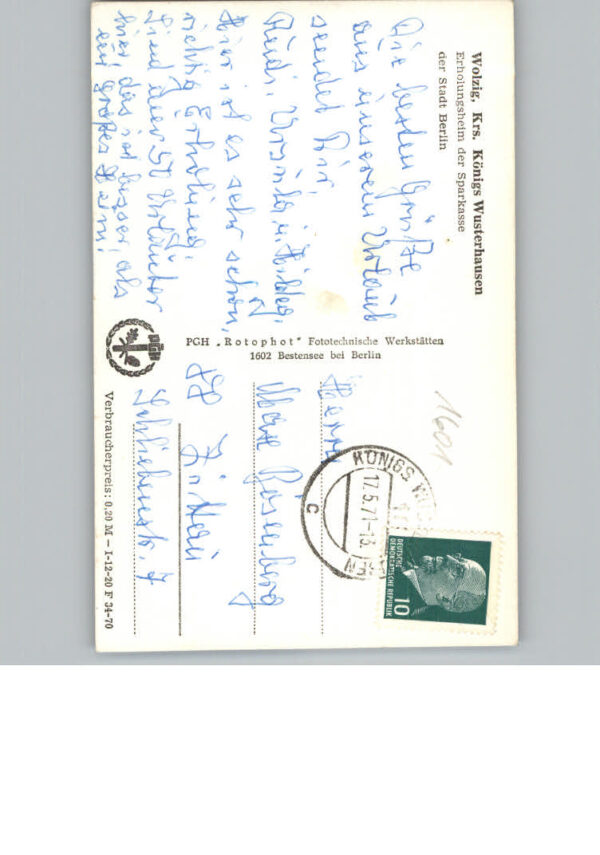 Wolzig, Krs. Königs Wusterhausen
Erholungsheim der Sparkasse
der Stadt Berlin
Die besten Grüße
aus unserem Urlaub
sendet Dir
Rudi, Ursula u.
Hier ist es sehr schön,
richtig Erholung.
Sind nur 50 Urlauber
hier das ist besser, als
ein großes Heim!
PGH „Rotophot" Fototechnische Werkstätten
1602 Bestensee bei Berlin
PGH
Verbraucherpreis: 0,20 M — I-12-20 F 34-70
Herrn
Max Rosenberg
88 Zittau
Schliebenstr. 7
1601
KÖNIGS WUS
17.5.71-13
C
DEUTSCHE
DEMOKRATISCHE REPUBLIK
10